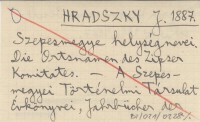 HRADSZKY J. 1887.
Szepesmegye helységnevei.
Die Ortsnamen des Zipser
Komitates. — A Szepes-
megyei Történelmi Társulat
Évkönyvei, Jahrbücher der